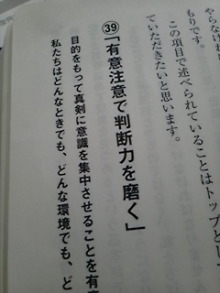 やらなけれ
もりです。
この項目で述べられていることはトップとし
ていただきたいと思います。
㊴「有意注意で判断力を磨く」
目的をもって真剣に意識を集中させることを有意
私たちはどんなときでも、どんな環境でも、ど